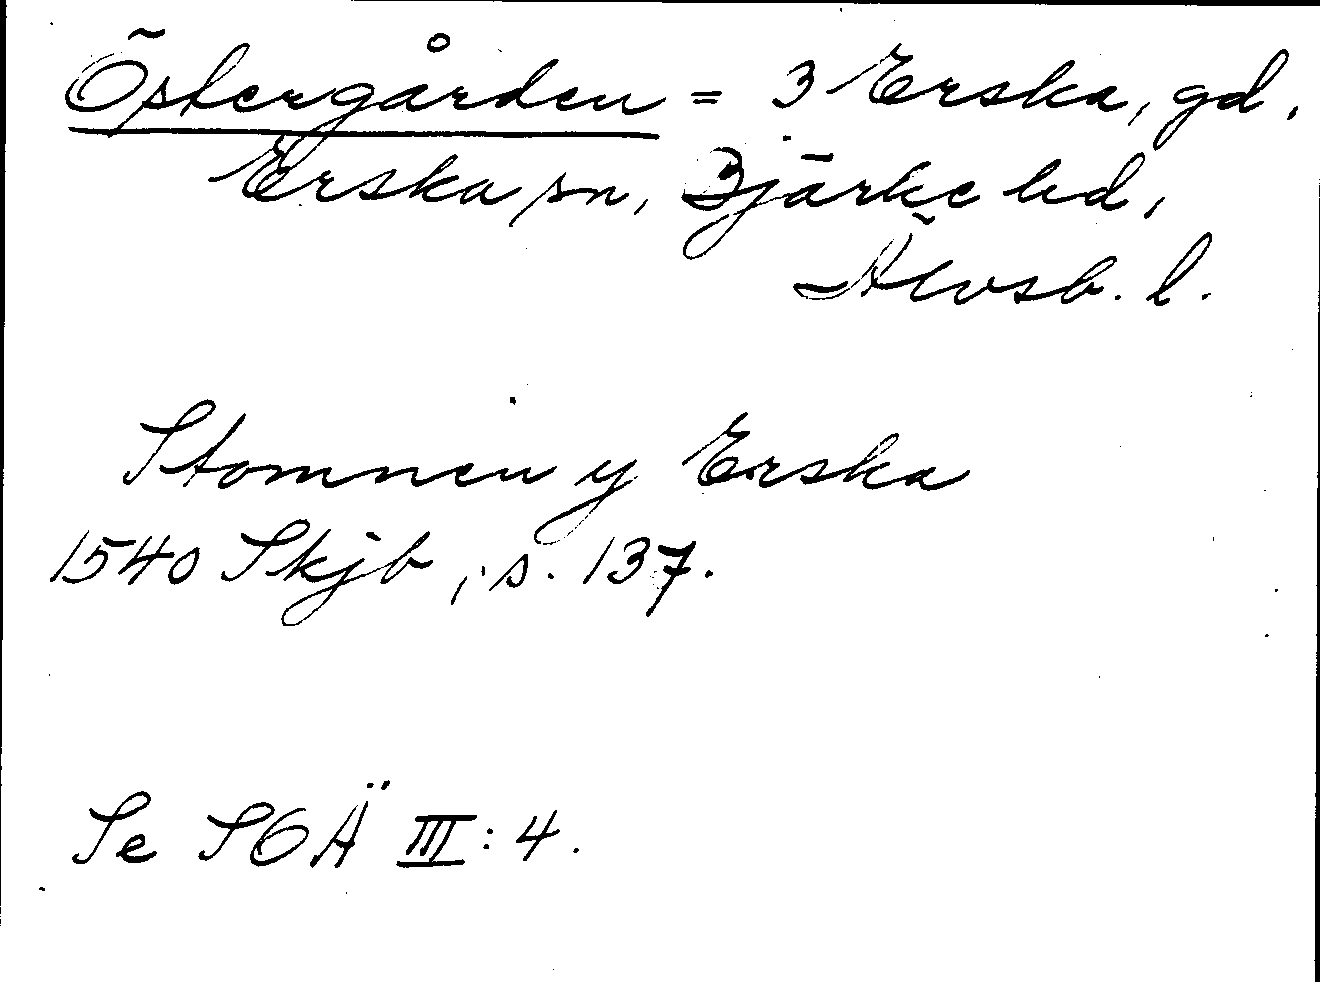 Östergården = 3 Erska, gd.
Erska sn, Bjärke hd,
Älvsb. l.
Stomnen y Erska
1540 Skjb, s. 137.
Se SOÄ III: 4.